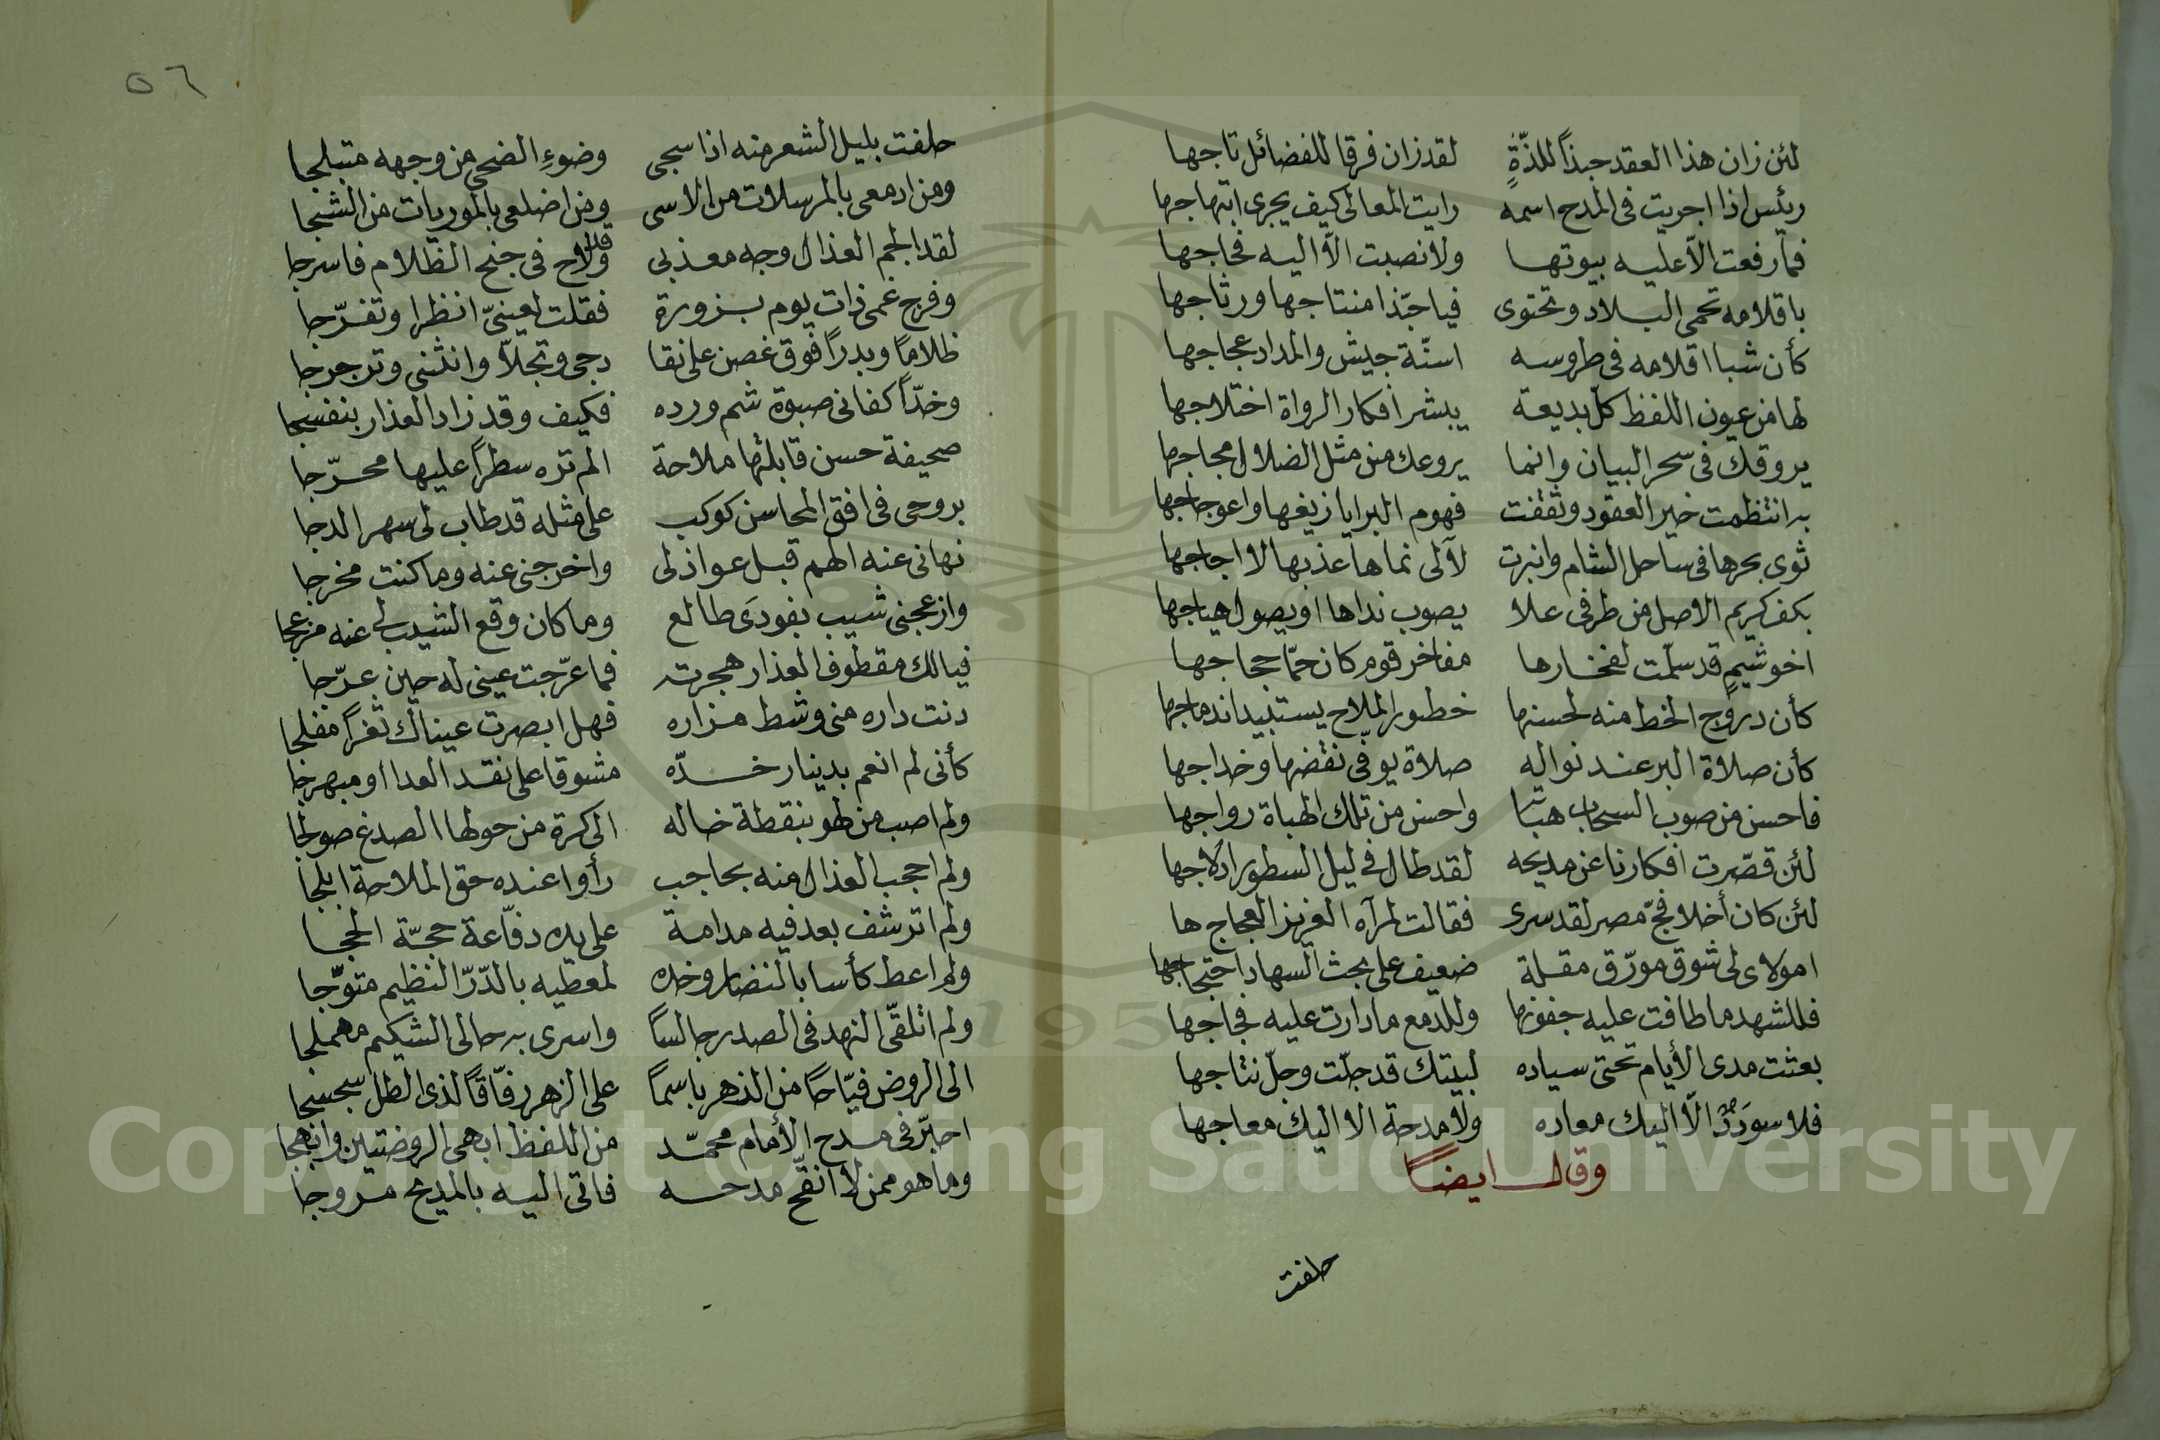 لئن زان هذا العقد جيذاً للذّةٍ لقد زان فرقا للفضائل تاجها
رئيس اذا اجريت فى المدح اسمه رايت المعالى كيف يجرى ابتهاجها
فما رفعت الاّ عليه بيوتها ولا نصبت الاّ اليه فجاجها
باقلامه تحمى البلاد وتحتوى فيا حبّذا منتاجها ورتاجها
كأن شبا اقلامه فى طروسه اسنّة جيش والمداد عجاجها
لها من عيون اللفظ كل بديعة يبشر افكار الرواة اختلاجها
يروقك فى سحر البيان وانما يروعك من مثل الضلال مجاجها
به انتظمت خير العقود وثقفت فهوم البرايا زيغها واعوجاجها
ثوى بحرها فى ساحل الشام وانبرت لآلى نماها عذبها لا اجاجها
بكف كريم الاصل من طرفى علا يصوب نداها او يصول هياجها
اخو شيمٍ قد سلّمت لفخارها مفاخر قوم كان حمّا حجاجها
كأن دروج الخط منه لحسنها خطور الملاح يستبيد اندماجها
كأن صلاة البر عند نواله صلاة يوفّى نقضها وخداجها
فاحسن من صوب السحاب هباتها واحسن من تلك الهباة رواجها
لئن قصّرت افكارنا عن مديحه لقد طال فى ليل السطور ادلاجها
لئن كان أخلا فجّ مصر لقد سرى فقالت لمرآه العزيز العجاج ها
امولاى لى شوق مورّق مقلة ضعيف على بحث السهاد احتجاجها
فللشهد ما طافت عليه جفونها وللدمع ما دارت عليه فجاجها
بعثت مدى الأيام تحتى سياده لبيتك قد جلّت وجلّ نتاجها
فلا سودَدٌ الاّ اليك معاده ولا مدحة الا اليك معاجها
وقال ايضاً
حلفت
٥٦
حلفت بليل الشعر منه اذا سجى وضوءِ الضحى من وجهه متبلجا
ومن ادمعى بالمرسلات من الاسى ومن اضلعى بالموريات من الشجا
لقد الجم العذال وجه معذبى وقد لاح فى جنح الظلام فاسرجا
وفرج غمى ذات يوم بزورة فقلت لعينىّ انظرا وتفرّجا
ظلاماً وبدراً فوق غصن على نقا دجى وتجلاّ وانثنى وترجرجا
وخدّاً كفانى صبوة شم ورده فكيف وقد زاد العذار بنفسجا
صحيفة حسن قابلتها ملاحة الم تره سطراً عليها محرّجا
بروحى فى افق المحاسن كوكب على مثله قد طاب لى سهر الدجا
نهانى عنه الهم قبل عواذلى واخرجنى عنه وما كنت مخرجا
وازعجنى شيب بفودَى طالع وما كان وقع الشيب لى عنه مزعجا
فيا لك مقطوف العذار هجرته فما عرّجت عينى له حين عرّجا
دنت داره منى وشط مزاره فهل ابصرت عيناك ثغراً مفلجا
كأنى لم انعم بدينار خدّه مشوقا على نقد العدا او مبهرجا
ولم اصب من لهو بنقطة خاله الى كرة من حولها الصدغ صولجا
ولم احجب العذال منه بحاجب رأوا عنده حق الملاحة ابلجا
ولم اترشف بعد فيه مدامة على يده دفّاعة حجّة الحجا
ولم اعط كأسا بالنضار وخده لمعطيه بالدّرّ النظيم متوّجا
ولم اتلقّى النهد فى الصدر جالساً واسرى به حالى الشكيم مهملجا
الى الروض فيّاحاً من الذهر باسماً على الزهر رفّاقاً لذى الطل سجسجا
احبّر فى مدح الأمام محمّد من اللفظ ابهى الروضتين وابهجا
وما هو ممن لا انقّح مدحه فاتى اليه بالمديح مروجا